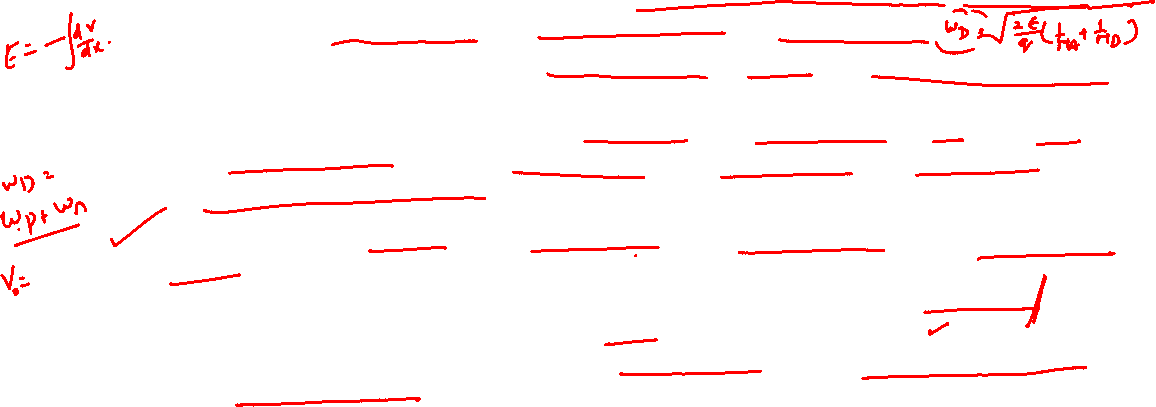 E = -∫ dV/dx.
W_D = √(2ε/q (1/N_A + 1/N_D))
W_D =
W_p + W_n
V_0 =